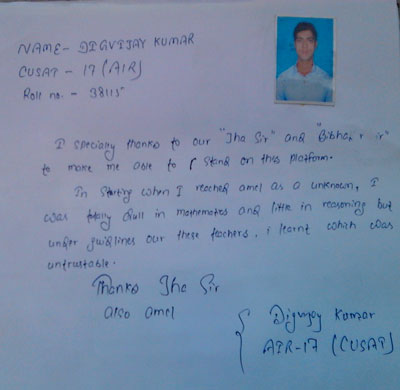 NAME- DIGVIJAY KUMAR
CUSAT - 17 (AIR)
Roll no. - 38115
I specialy thanks to our "Jha Sir" and
to make me able to stand on this platform.
In starting when I reached amel as a unknown, I
was totaly dull in mathematics and little in reasoning but
under guidlines our these teachers, i learnt which was
unfrustable.
Thanks Jha Sir
also amel
Digvijay Kumar
AIR-17 (CUSAT)